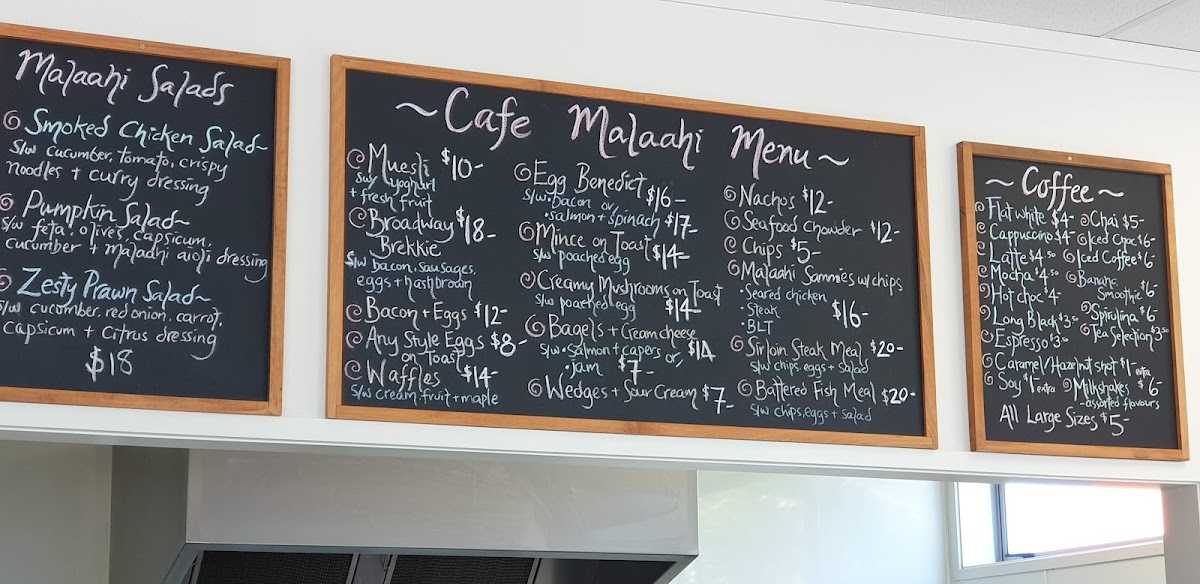 Malaahi Salads
Smoked Chicken Salad~
s/w cucumber, tomato, crispy
noodles + curry dressing
Pumpkin Salad~
s/w feta, olives, capsicum,
cucumber + malaahi aioli dressing
Zesty Prawn Salad~
s/w cucumber, red onion, carrot,
capsicum + citrus dressing
$18
~Cafe Malaahi Menu~
Muesli $10-
s/w yoghurt
+ fresh fruit
Broadway $18-
Brekkie
s/w bacon, sausages,
eggs + hashbrown
Bacon + Eggs $12-
Any Style Eggs $8-
on Toast
Waffles $14-
s/w cream fruit + maple
Egg Benedict $16-
s/w. bacon or
• salmon + spinach $17-
Mince on Toast $14-
s/w poached egg
Creamy Mushrooms on Toast
s/w poached egg $14-
Bagels + Cream cheese
s/w • Salmon + capers or $14
• Jam $7-
Wedges + Sour Cream $7-
Nachos $12-
Seafood Chowder $12-
Chips $5-
Malaahi Sammies w/ chips
• Seared chicken
• Steak $16-
• BLT
Sirloin Steak Meal $20-
s/w chips, eggs + salad
Battered Fish Meal $20-
s/w chips, eggs + salad
~ Coffee ~
Flat white $4-
Cappuccino $4-
Latte $4.50
Mocha $4.50
Hot choc $4-
Long Black $3.50
Espresso $3.50
Chai $5-
Iced Choc $6-
Iced Coffee $6-
Banana
Smoothie $6-
Spirulina $6-
Tea Selection $3.50
Caramel/Hazelnut shot $1- extra
Soy $1 extra
Milkshakes $6-
- assorted flavours
All Large Sizes $5-